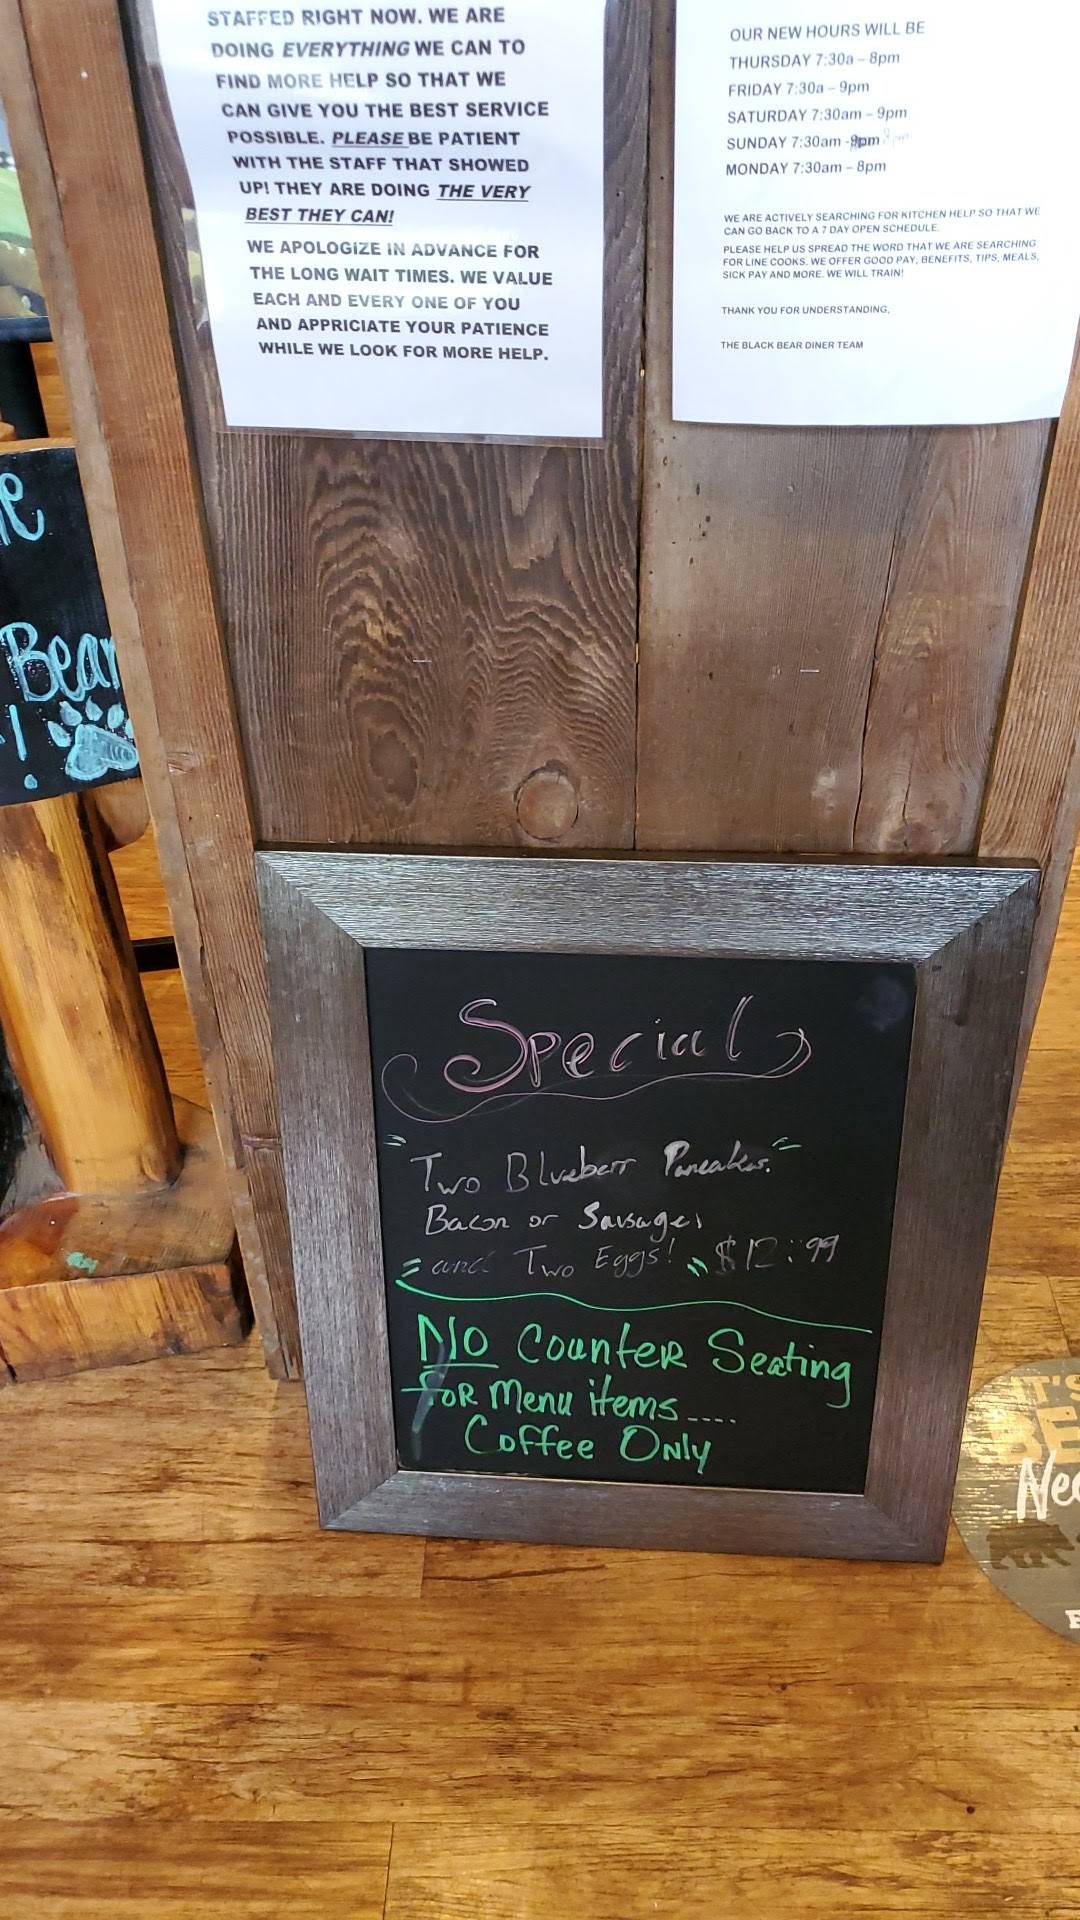 STAFFED RIGHT NOW. WE ARE
DOING EVERYTHING WE CAN TO
FIND MORE HELP SO THAT WE
CAN GIVE YOU THE BEST SERVICE
POSSIBLE. PLEASE BE PATIENT
WITH THE STAFF THAT SHOWED
UP! THEY ARE DOING THE VERY
BEST THEY CAN!
WE APOLOGIZE IN ADVANCE FOR
THE LONG WAIT TIMES. WE VALUE
EACH AND EVERY ONE OF YOU
AND APPRICIATE YOUR PATIENCE
WHILE WE LOOK FOR MORE HELP.
OUR NEW HOURS WILL BE
THURSDAY 7:30a – 8pm
FRIDAY 7:30a – 9pm
SATURDAY 7:30am – 9pm
SUNDAY 7:30am -
MONDAY 7:30am – 8pm
WE ARE ACTIVELY SEARCHING FOR KITCHEN HELP SO THAT WE
CAN GO BACK TO A 7 DAY OPEN SCHEDULE.
PLEASE HELP US SPREAD THE WORD THAT WE ARE SEARCHING
FOR LINE COOKS. WE OFFER GOOD PAY, BENEFITS, TIPS, MEALS,
SICK PAY AND MORE. WE WILL TRAIN!
THANK YOU FOR UNDERSTANDING,
THE BLACK BEAR DINER TEAM
Bear
!
Special
"Two Blueberr Pancakes."
Bacon or Sausage,
and Two Eggs! $12.99
NO Counter Seating
for Menu items....
Coffee Only
IT'S